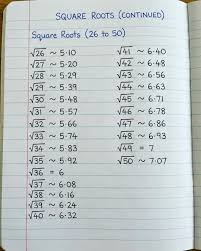 SQUARE ROOTS (CONTINUED)
Square Roots (26 to 50)
√26 ~ 5·10
√27 ~ 5·20
√28 ~ 5·29
√29 ~ 5·39
√30 ~ 5·48
√31 ~ 5·66
√32 ~ 5·66
√33 ~ 5·74
√34 ~ 5·83
√35 ~ 5·92
√36 = 6
√37 ~ 6·08
√38 ~ 6·16
√39 ~ 6·24
√40 ~ 6·32
√41 ~ 6·40
√42 ~ 6·48
√43 ~ 6·56
√44 ~ 6·63
√45 ~ 6·71
√46 ~ 6·78
√47 ~ 6·86
√48 ~ 6·93
√49 = 7
√50 ~ 7·07